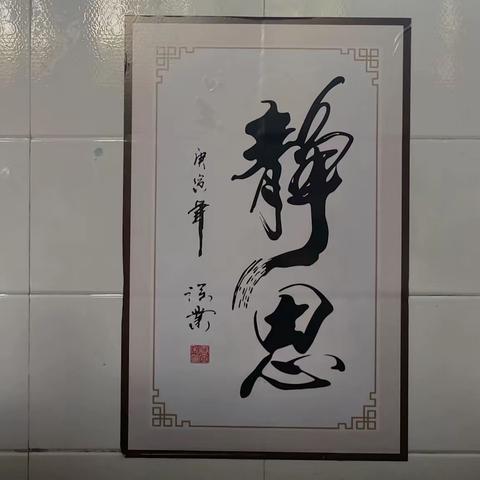 静思
庚寅年